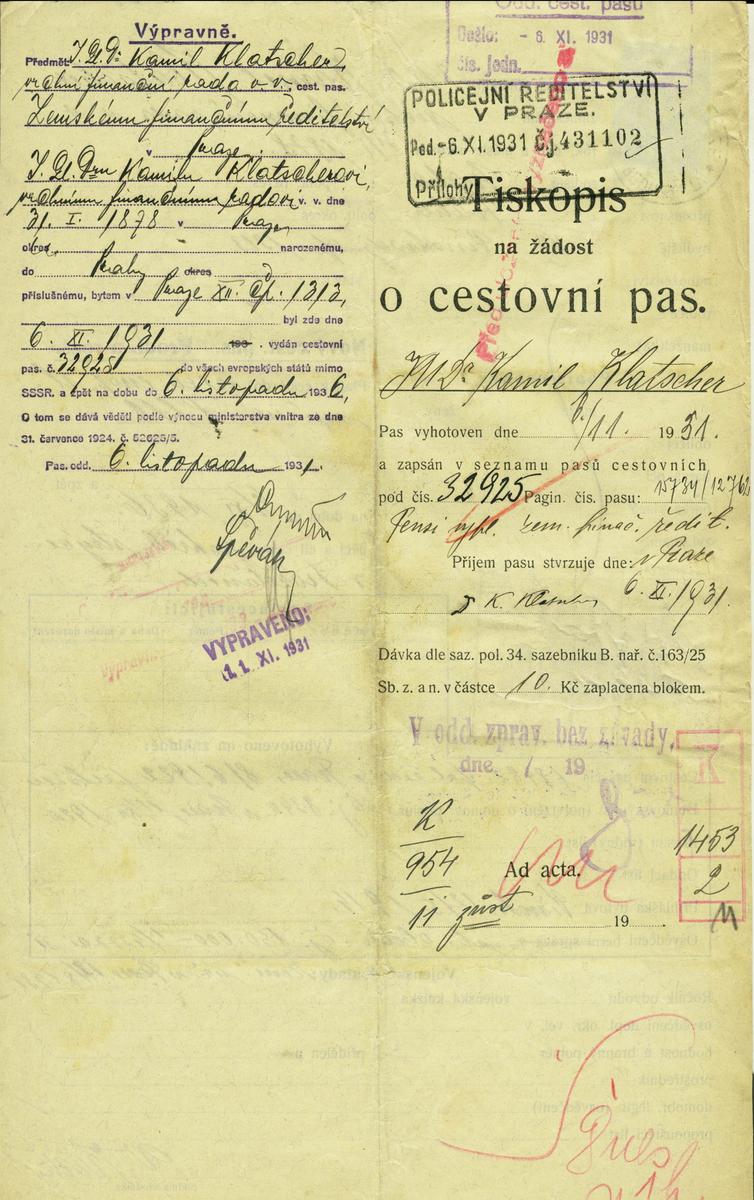 Výpravně.
Předmět: J. U. Dr. Kamil Klatscher,
vrchní finanční rada v. v., cest. pas.
Zemskému finančnímu ředitelství
v Praze
J. U. Dru Kamilu Klatscherovi,
vrchnímu finančnímu radovi v. v. dne
31. I. 1878 v Praze
okres narozenému,
do Prahy okres
příslušnému, bytem v Praze XII. čp. 1313,
byl zde dne
6. XI. 1931 193 . vydán cestovní
pas. č. 32925 do všech evropských států mimo
SSSR. a zpět na dobu do 6. listopadu 1936,
O tom se dává věděti podle výnosu ministerstva vnitra ze dne
31. července 1924. č. 52625/5.
Pas. odd. 6. listopadu 1931.
VYPRAVENO:
11. XI. 1931
Odd. cest. pasů
Došlo: - 6. XI. 1931
Čís. jedn.
POLICEJNÍ ŘEDITELSTVÍ
V PRAZE.
Pod. -6. XI. 1931 Čj. 431102
Přílohy
Tiskopis
na žádost
o cestovní pas.
JUDr Kamil Klatscher
Pas vyhotoven dne 6/11. 1931.
a zapsán v seznamu pasů cestovních
pod čís. 32925 Pagin. čís. pasu: 15734/12762
Pensi vypl. zem. finač. ředit.
Příjem pasu stvrzuje dne: v Praze
6. XI. 1931.
Dr K. Klatscher
Dávka dle saz. pol. 34. sazebníku B. nař. č. 163/25
Sb. z. a n. v částce 10. Kč zaplacena blokem.
V odd. zprav. bez závady.
dne / 19
K
954
11
Ad acta.
19
K
1453
2
11